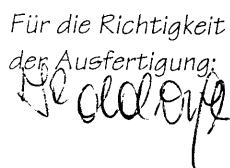 Für die Richtigkeit
der Ausfertigung: